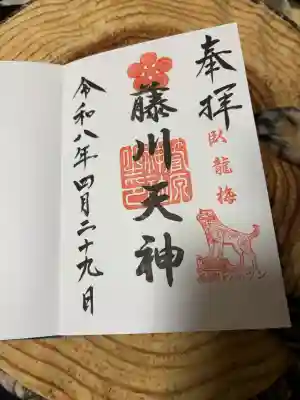 奉拝
臥龍梅
藤川天神
令和八年四月二十九日